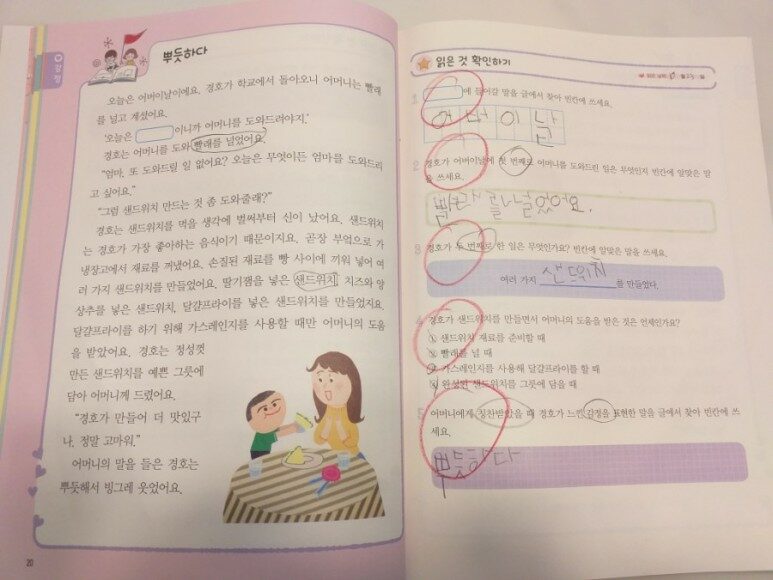 감정
뿌듯하다
오늘은 어버이날이에요. 경호가 학교에서 돌아오니 어머니는 빨래
를 널고 계셨어요.
'오늘은 이니까 어머니를 도와드려야지.'
경호는 어머니를 도와 빨래를 널었어요.
"엄마, 또 도와드릴 일 없어요? 오늘은 무엇이든 엄마를 도와드리
고 싶어요."
"그럼 샌드위치 만드는 것 좀 도와줄래?"
경호는 샌드위치를 먹을 생각에 벌써부터 신이 났어요. 샌드위치
는 경호가 가장 좋아하는 음식이기 때문이지요. 곧장 부엌으로 가
냉장고에서 재료를 꺼냈어요. 손질된 재료를 빵 사이에 끼워 넣어 여
러 가지 샌드위치를 만들었어요. 딸기잼을 넣은 샌드위치, 치즈와 양
상추를 넣은 샌드위치, 달걀프라이를 넣은 샌드위치를 만들었지요.
달걀프라이를 하기 위해 가스레인지를 사용할 때만 어머니의 도움
을 받았어요. 경호는 정성껏
만든 샌드위치를 예쁜 그릇에
담아 어머니께 드렸어요.
"경호가 만들어 더 맛있구
나. 정말 고마워."
어머니의 말을 들은 경호는
뿌듯해서 빙그레 웃었어요.
20
읽은 것 확인하기
1 에 들어갈 말을 글에서 찾아 빈칸에 쓰세요.
어버이날
2 경호가 어버이날에 첫 번째로 어머니를 도와드린 일은 무엇인지 빈칸에 알맞은 말
을 쓰세요.
널었어요.
3 경호가 두 번째로 한 일은 무엇인가요? 빈칸에 알맞은 말을 쓰세요.
여러 가지 샌드위치 를 만들었다.
4 경호가 샌드위치를 만들면서 어머니의 도움을 받은 것은 언제인가요?
① 샌드위치 재료를 준비할 때
② 빨래를 널 때
③ 가스레인지를 사용해 달걀프라이를 할 때
④ 완성된 샌드위치를 그릇에 담을 때
5 어머니에게 칭찬받았을 때 경호가 느낀 감정을 표현한 말을 글에서 찾아 빈칸에 쓰
세요.
뿌듯하다